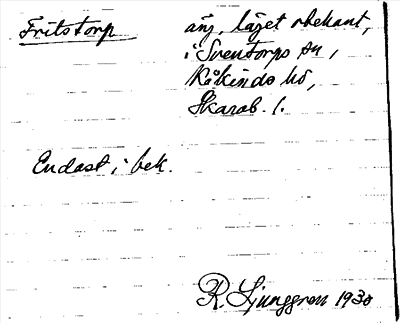 Fritstorp äng, läget obekant,
i Sventorps sn,
Kåkinds hd,
Skarab. l.
Endast i bek.
R. Ljunggren 1930